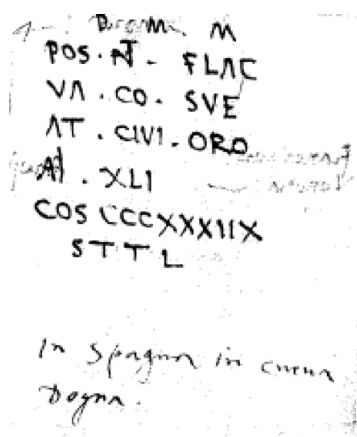 D. M. M
POS. AT. FLAC
VA. CO. SVE
AT. CIVI. ORO
AN. XLI
COS CCCXXXIIX
S T T L
In Spagna in
Dogna.